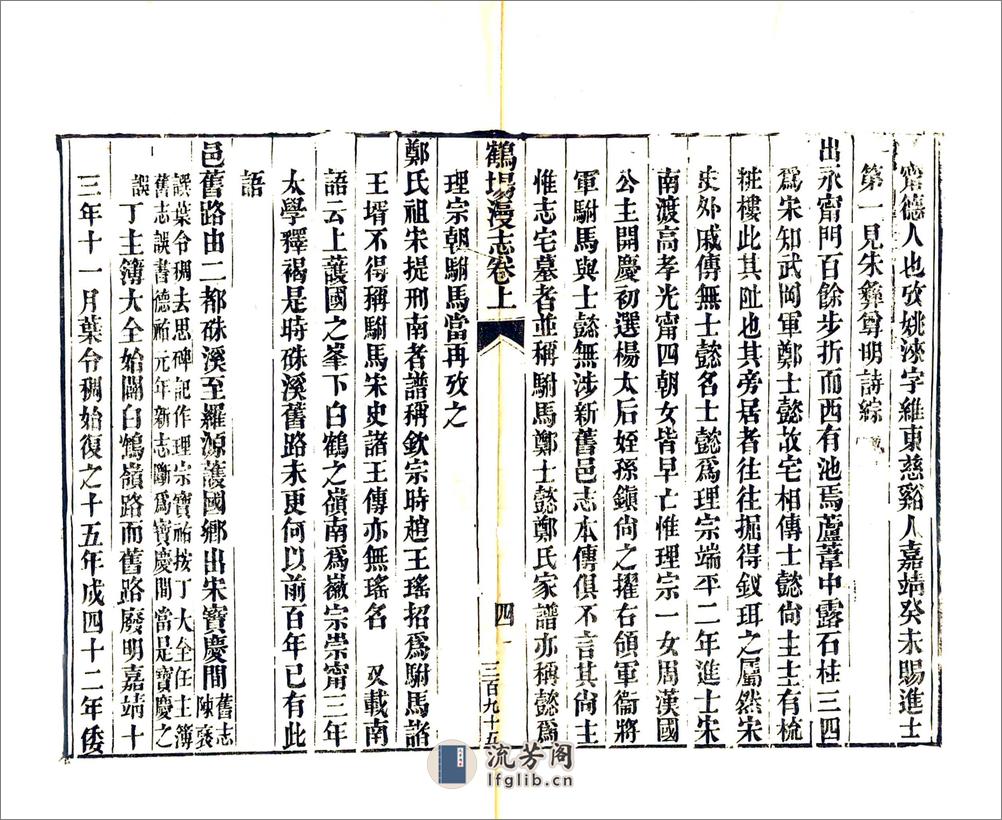 甯德人也攷姚淶字維東慈谿人嘉靖癸未賜進士
第一見朱彝尊明詩綜
出承甯門百餘步折而西有池焉蘆葦中露石柱三四
爲宋知武岡軍鄭士懿故宅相傳士懿尙主主有梳
粧樓此其阯也其旁居者往往掘得釵珥之屬然宋
史外戚傳無士懿名士懿爲理宗端平二年進士宋
南渡高孝光甯四朝女皆早亡惟理宗一女周漢國
公主開慶初選楊太后姪孫鎭尙之擢右領軍衞將
軍駙馬與士懿無涉新舊邑志本傳俱不言其尙主
惟志宅墓者並稱駙馬鄭士懿鄭氏家譜亦稱懿爲
鶴場漫志卷上
四
三百九十五
理宗朝駙馬當再攷之
鄭氏祖宋提刑南者譜稱欽宗時趙王瑤招爲駙馬諸
王壻不得稱駙馬宋史諸王傳亦無瑤名 又載南
語云上護國之峯下白鶴之嶺南爲徽宗崇甯三年
太學釋褐是時硃溪舊路未更何以前百年已有此
語
邑舊路由二都硃溪至羅源護國鄉出宋寶慶間舊志陳褒
誤葉令稠去思碑記作理宗寶祐按丁大全任主簿
舊志誤書德祐元年新志斷爲寶慶間當是寶慶之
誤丁主簿大全始闢白鶴嶺路而舊路廢明嘉靖十
三年十一月葉令稠始復之十五年成四十二年倭
流芳阁
lfglib.cn